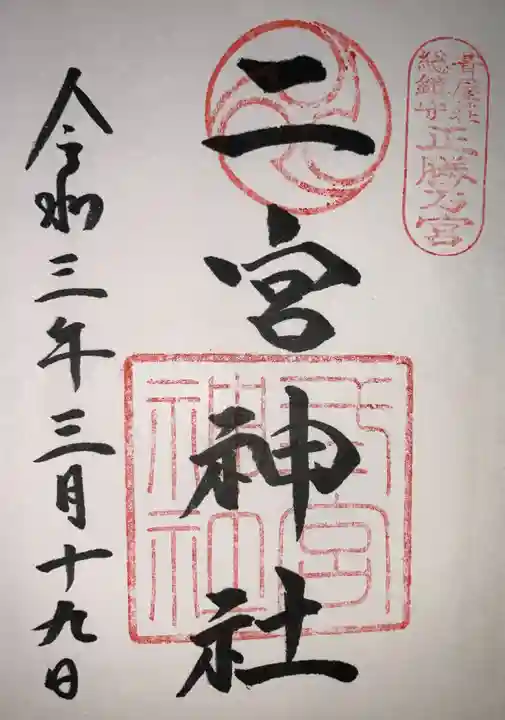 葺屋荘
総鎮守
正勝乃宮
二宮神社
二宮神社
令和三年三月十九日